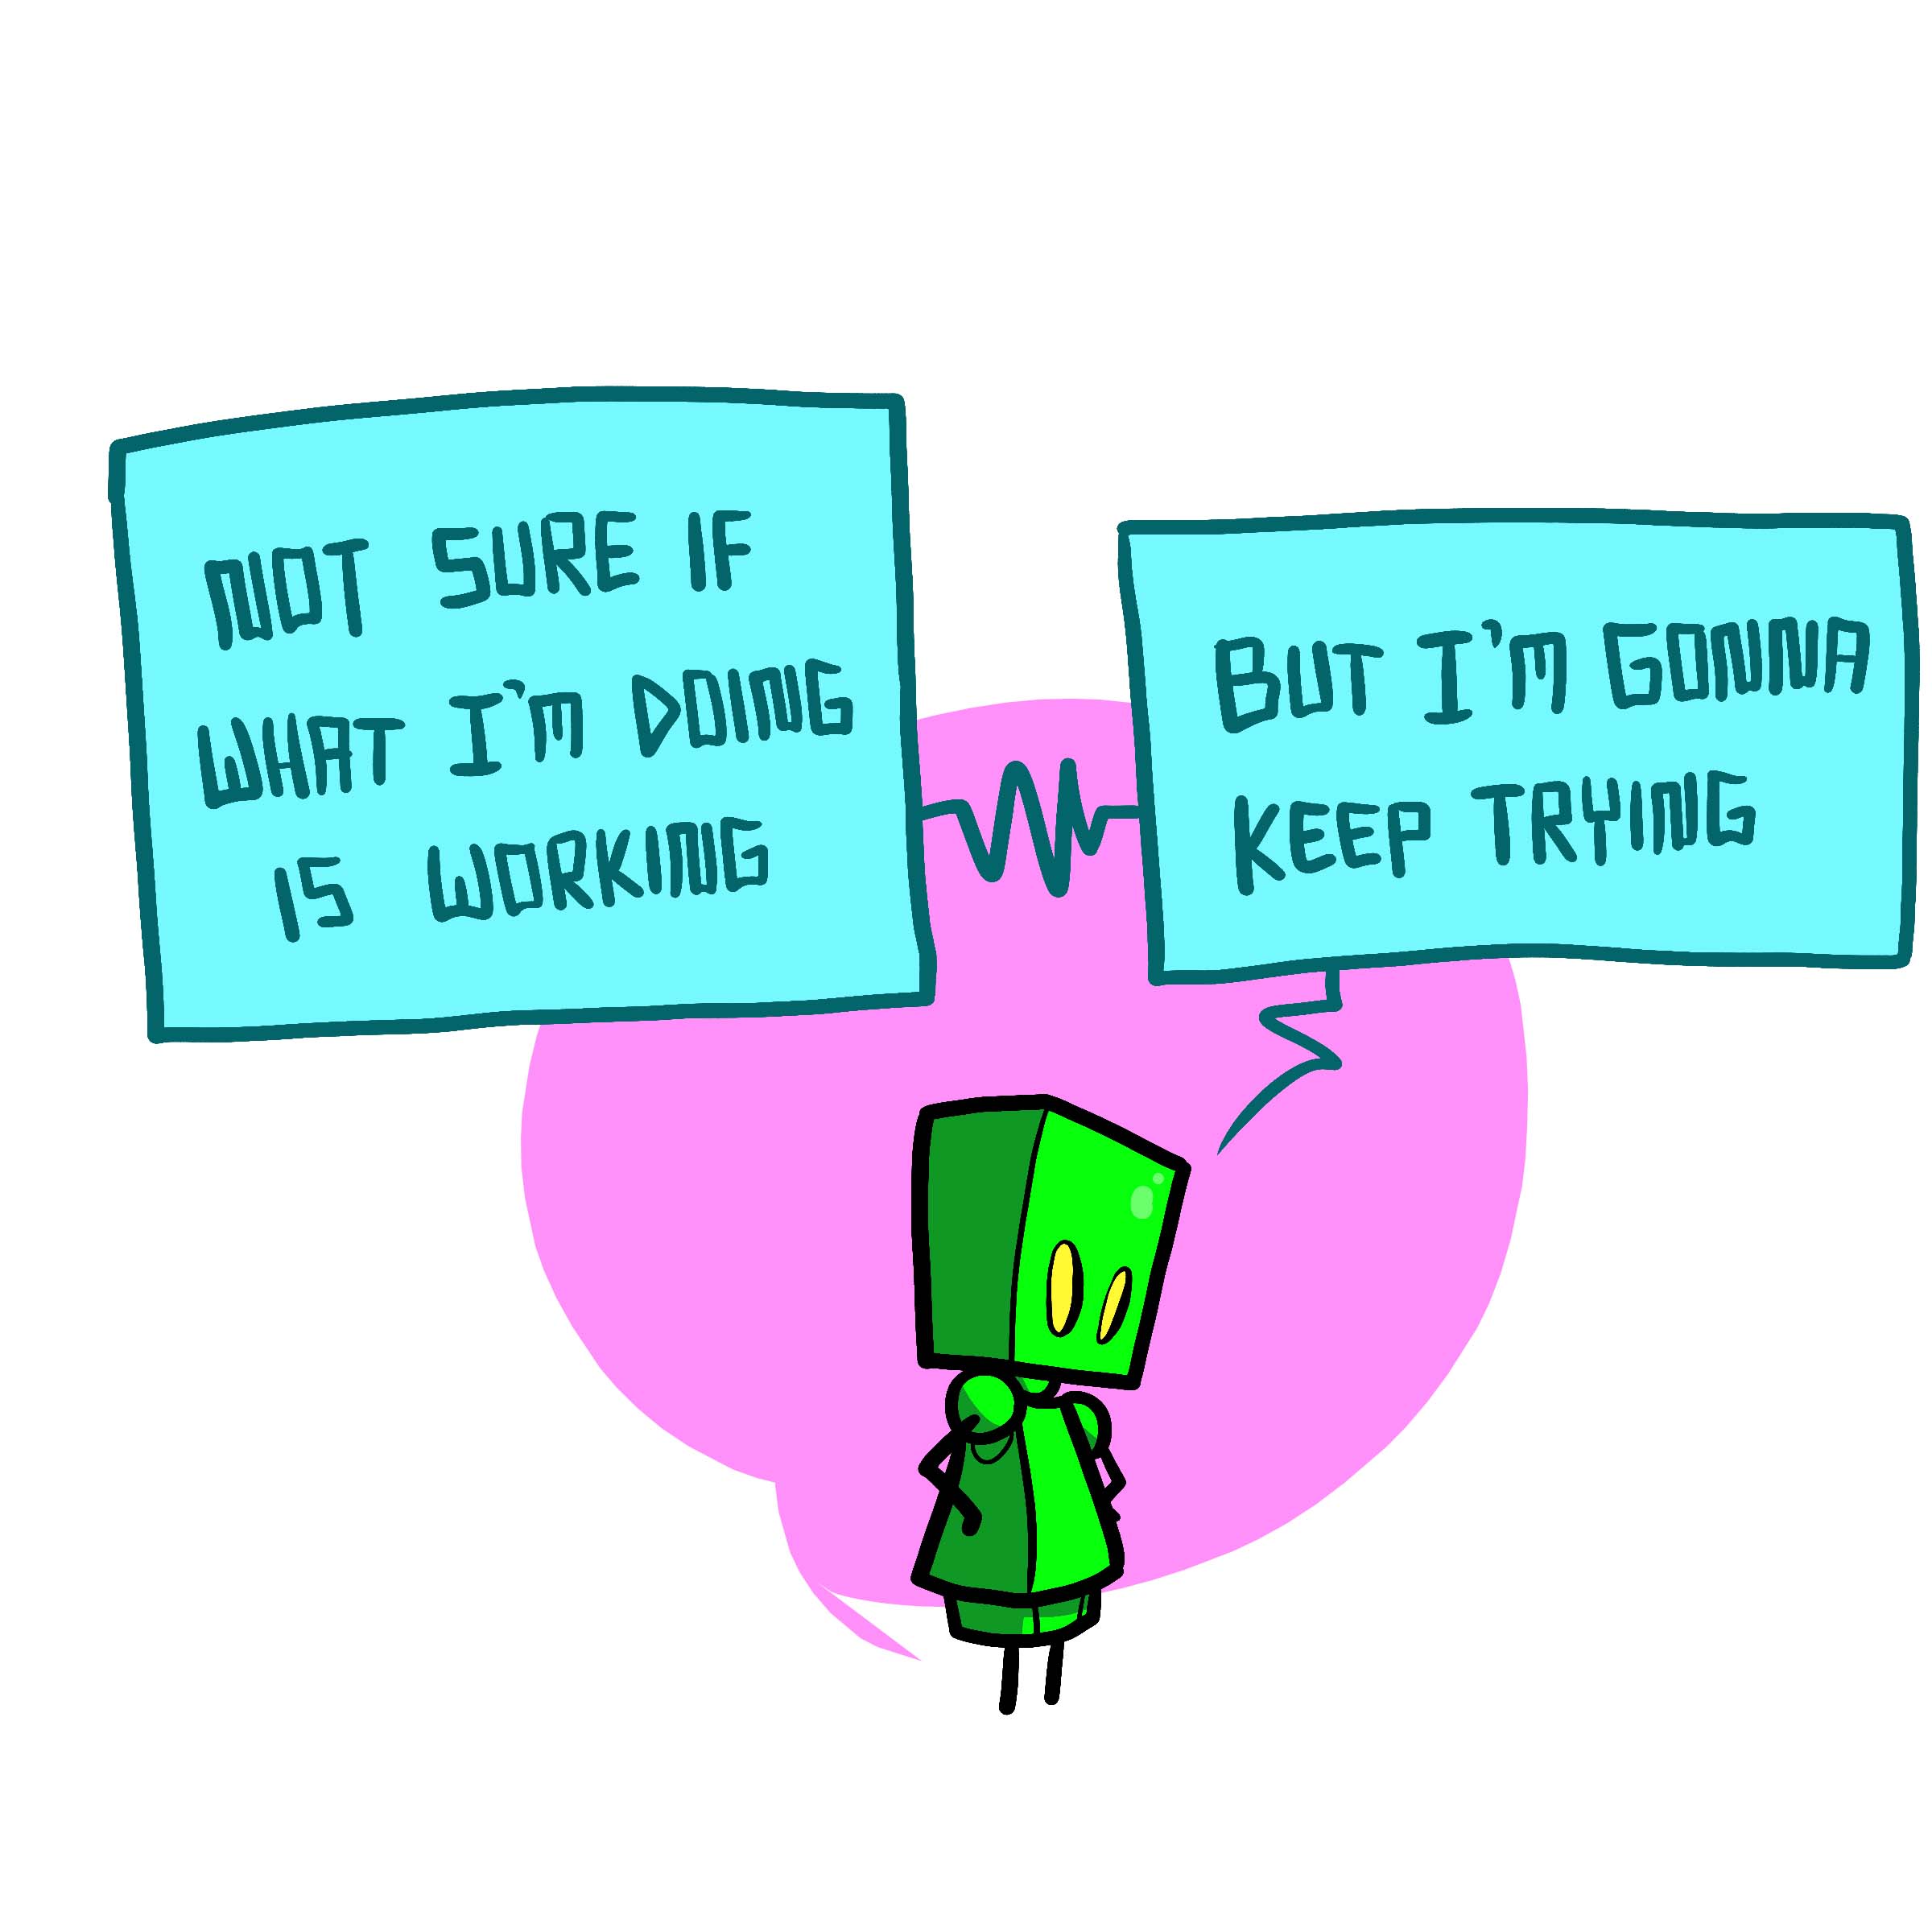 NOT SURE IF
WHAT I'M DOING
IS WORKING
BUT I'M GONNA
KEEP TRYING